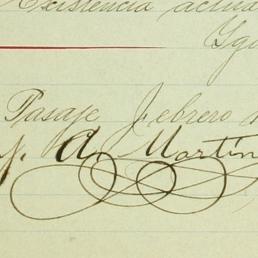 Existencia actua
Igu
Pasaje Febrero
J. A. Martin